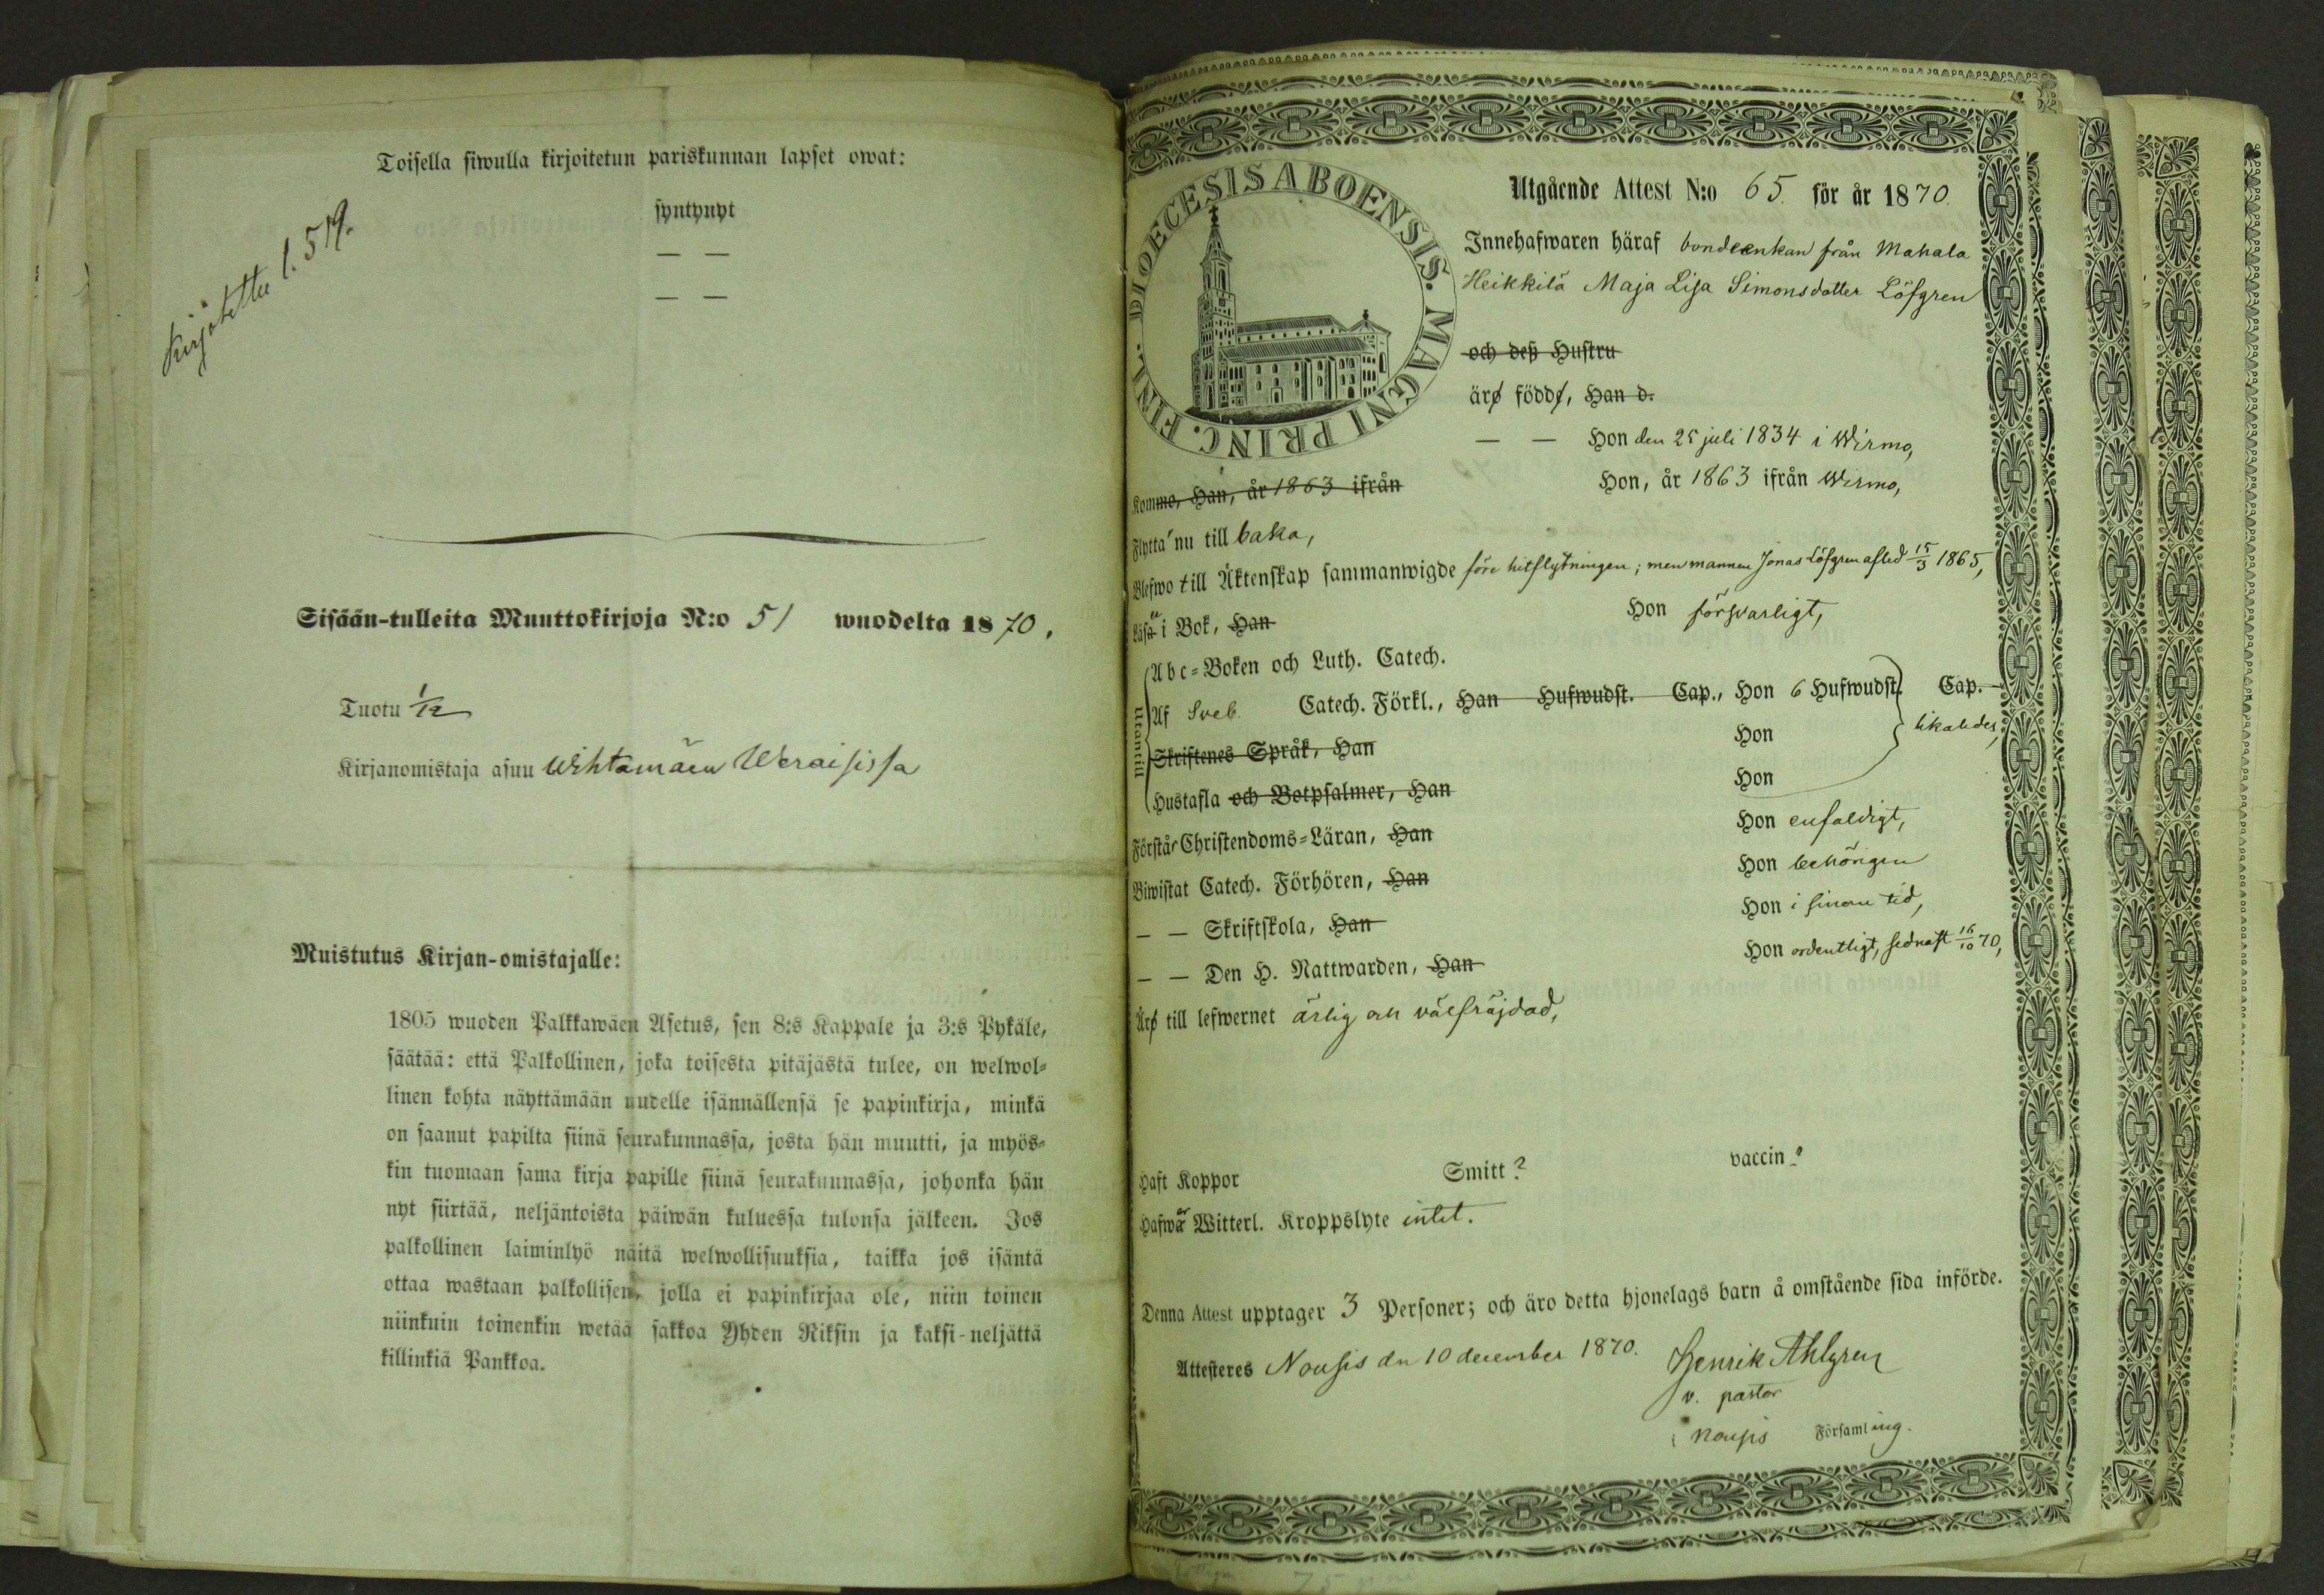 Toisella siwulla kirjoitetun pariskunnan lapset owat:
syntynyt
— —
— —
Kirjotettu l. 519.
Sisään-tulleita Muuttokirjoja N:o 51 wuodelta 1870.
Tuotu 1/12
Kirjanomistaja asuu Wihtamäen Weraisissa
Muistutus Kirjan-omistajalle:
1805 wuoden Palkkawäen Asetus, sen 8:s Kappale ja 3:s Pykäle,
säätää: että Palkollinen, joka toisesta pitäjästä tulee, on welwol-
linen kohta näyttämään uudelle isännällensä se papinkirja, minkä
on saanut papilta siinä seurakunnassa, josta hän muutti, ja myös-
kin tuomaan sama kirja papille siinä seurakunnassa, johonka hän
nyt siirtää, neljäntoista päiwän kuluessa tulonsa jälkeen. Jos
palkollinen laiminlyö näitä welwollisuuksia, taikka jos isäntä
ottaa wastaan palkollisen, jolla ei papinkirjaa ole, niin toinen
niinkuin toinenkin wetää sakkoa Yhden Riksin ja kaksi-neljättä
killinkiä Pankkoa.
DIOECESIS ABOENSIS. MAGNI PRINC. FINL.
Utgående Attest N:o 65. för år 1870.
Innehafwaren häraf bondeenkan från Mahala
Heikkilä Maja Lisa Simonsdotter Löfgren
och deß Hustru
äro födde, Han d.
— — Hon den 25 juli 1834 i Wirmo,
Kommo, Han, år 1863 ifrån Hon, år 1863 ifrån Wirmo,
Flytta nu till baka,
Blefwo till Äktenskap sammanwigde före hitflyttningen; men mannen Jonas Löfgren afled 15/3 1865,
Läsa i Bok, Han Hon försvarligt,
Utantill
Abc-Boken och Luth. Catech.
Af Sveb. Catech. Förkl., Han Hufwudst. Cap., Hon 6 Hufwudst. Cap.
Skriftenes Språk, Han Hon likaledes,
Hustafla och Botpsalmer, Han Hon
Förstår Christendoms-Läran, Han Hon enfaldigt,
Biwistat Catech. Förhören, Han Hon behörigen
— — Skriftskola, Han Hon i sinom tid,
— — Den H. Nattwarden, Han Hon ordentligt, sednast 16/10 70,
Äro till lefwernet ärlig och välfräjdad,
Haft Koppor Smitt? vaccin?
Hafwa Witterl. Kroppslyte intet.
Denna Attest upptager 3 Personer; och äro detta hjonelags barn å omstående sida införde.
Attesteres Nousis dn 10 december 1870. Henrik Ahlgren
v. pastor
i Nousis Församling.